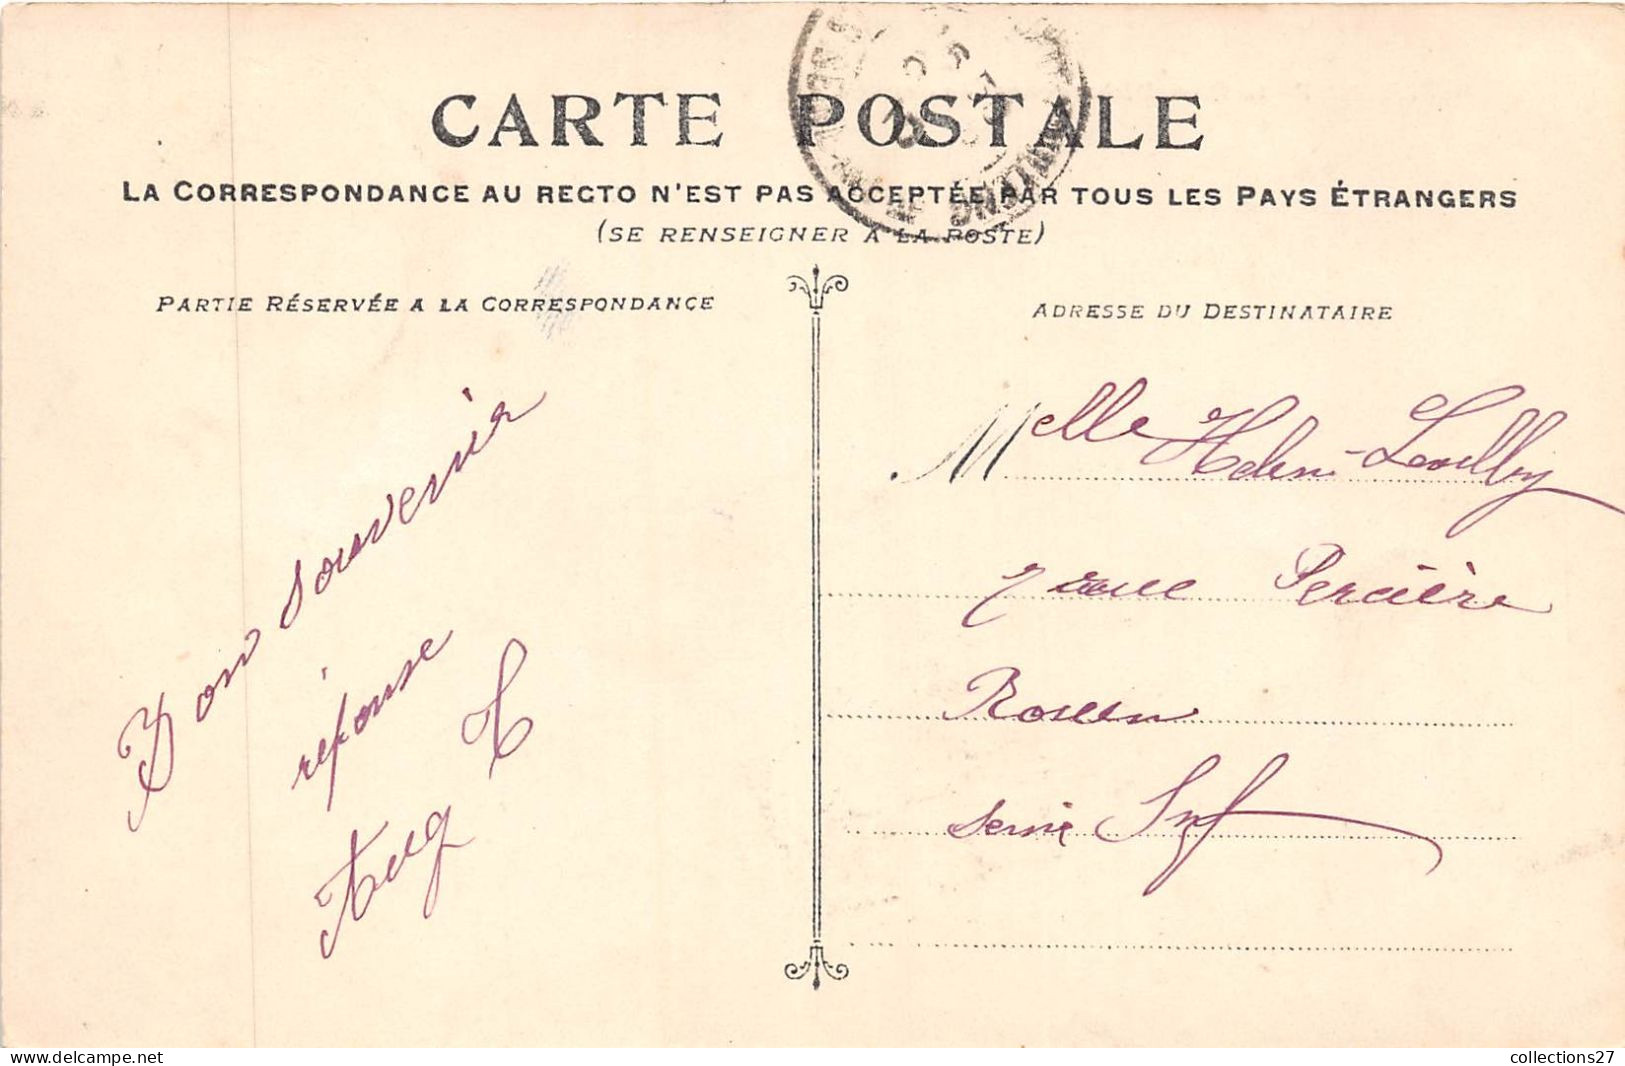 CARTE POSTALE
LA CORRESPONDANCE AU RECTO N'EST PAS ACCEPTÉE PAR TOUS LES PAYS ÉTRANGERS
(SE RENSEIGNER A LA POSTE)
PARTIE RÉSERVÉE A LA CORRESPONDANCE
Bon souvenir
réponse
Aug
ADRESSE DU DESTINATAIRE
Melle
7 rue Percière
Rouen
Seine Inf
collections27